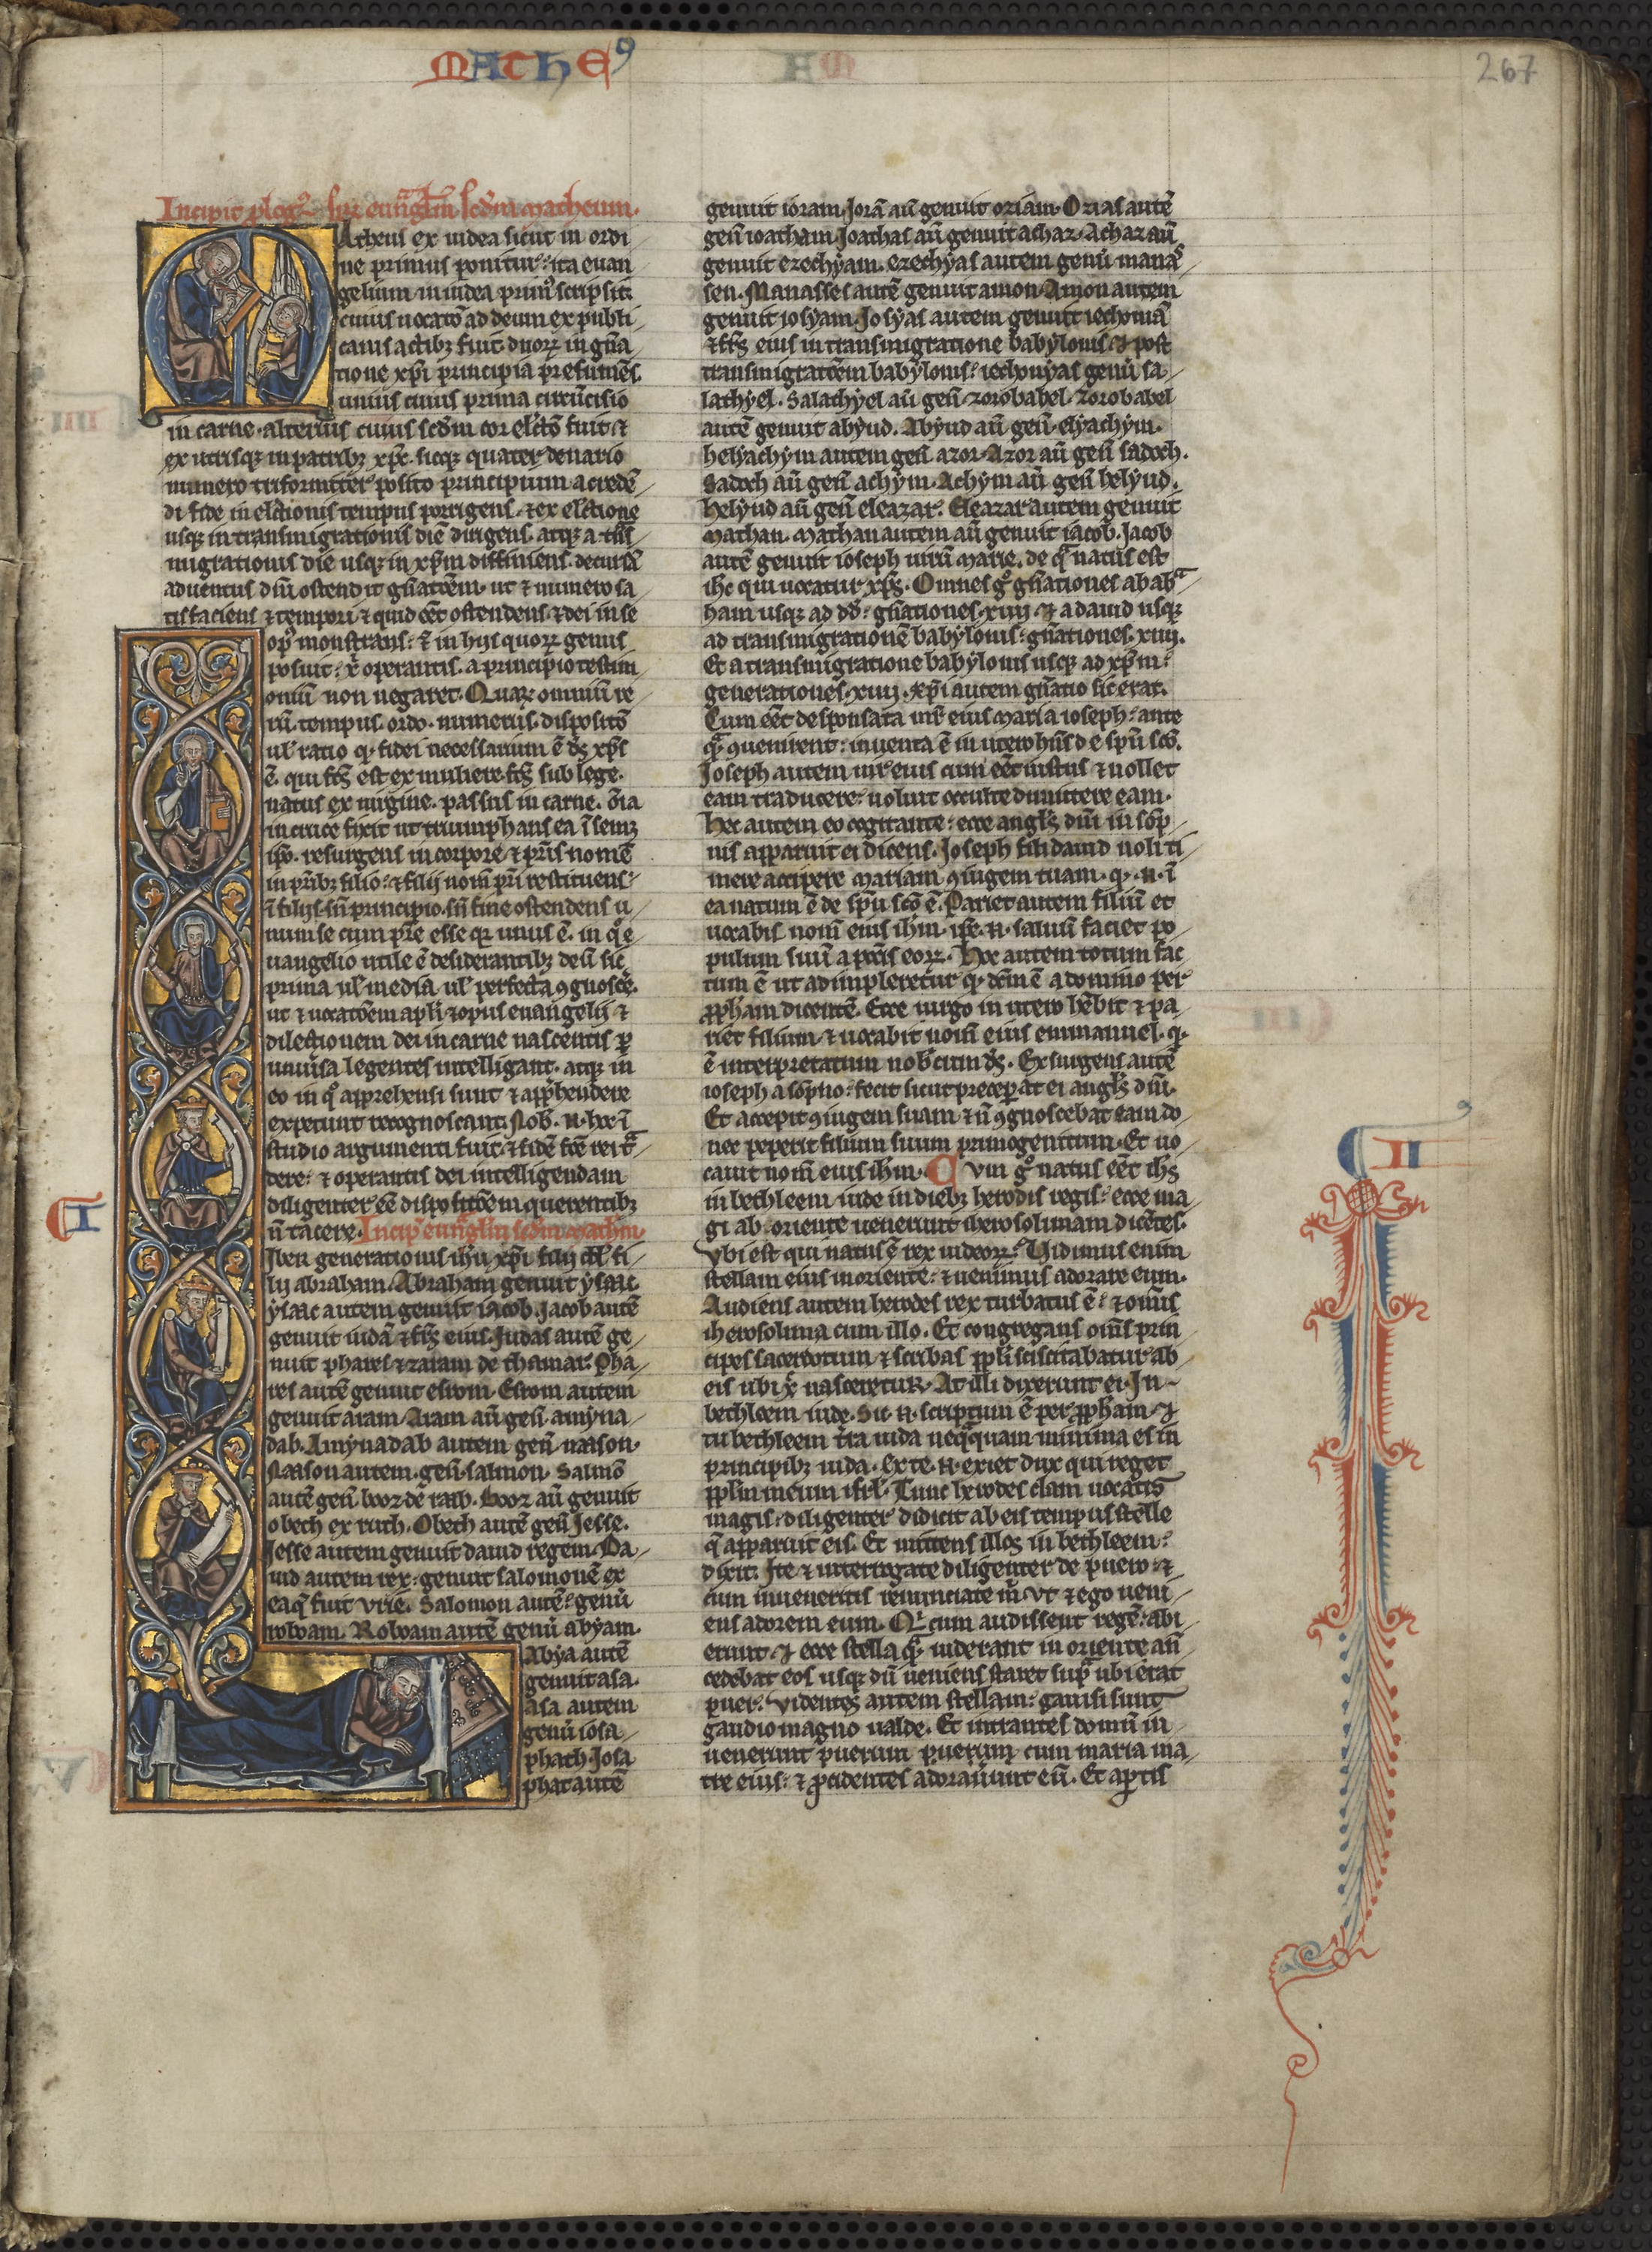 MATHE⁹
267
Incipit plog⁹ sup euāgliū scdm matheum.
Matheus ex iudea sicut in ordi
ne primus ponitur: ita euan
gelium in iudea prim⁹ scripsit:
cuius uocatō ad deum ex publi
canis actibꝫ fuit. duoꝝ in gn̄a
tione xp̄i principia presumēs.
unius cuius prima circūcisio
in carne. alterius cuius scdm cor elc̄tō fuit. ⁊
ex utrisqꝫ in patribꝫ xp̄c. sicqꝫ quater denario
numero triformiter posito principium a credē
di fide in elc̄tionis tempus porrigens. ⁊ ex elc̄tione
usqꝫ in transmigrationis diē dirigens. atqꝫ a tn̄s
migrationis die usqꝫ in xp̄m diffiniens. decursā
aduentus dn̄i ostendit gn̄atōem. ut ⁊ numero sa
tis faciens ⁊ tempori ⁊ quid eēt ostendens ⁊ dei in se
op⁹ monstrans: ⁊ in hijs quoꝝ genus
posuit: xp̄i operantis. a principio testim
oniū non negaret. Quaꝝ omniū re
rū tempus. ordo. numerus. dispositō
ul̄ ratio qd̄ fidei necessarium ē ds̄ xp̄s
ē. qui fc̄s est ex muliere. fc̄s sub lege.
natus ex uirgine. passus in carne. oīa
in cruce fixit ut triumphans ea ī semꝫ
ip̄o. resurgens in corpore. ⁊ pr̄is nomē
in pr̄ibꝫ filio: ⁊ filij nom̄ pr̄i restituens:
ī filijs. sn̄ principio. sn̄ fine ostendens u
num se cum pr̄e esse qꝛ unus ē. in qͦ e
uangelio utile ē desiderantibꝫ deū sic
prima ul̄ media ul̄ perfecta ꝯgnosce.
ut ⁊ uocatōem apl̄i ⁊ opus euangelij ⁊
dilectionem dei in carne nascentis ꝑ
uniūsa legentes intelligant. atqꝫ in
eo in qͦ apprehensi sunt ⁊ app̄hendere
expetunt recognoscant. Nob̄. n̄. hoc ī
studio argumenti fuit. ⁊ fidē fc̄e rei tͣ
dere: ⁊ operantis dei intelligendam
diligenter eē dispositōem querentibꝫ
n̄ tacere. Incip̄ euāgliū scdm mathm̄.
I
Iber generationis ih̄u xp̄i filij dd̄ fi
lij abraham. Abraham genuit ysaac.
ysaac autem genuit iacob. Jacob autē
genuit iudā ⁊ fr̄s eius. Judas autē ge
nuit phares ⁊ zaram de thamar. Pha
res autē genuit esrom. Esrom autem
genuit aram. Aram aū gen̄. amyna
dab. Amynadab autem gen̄ naason.
Naason autem. gen̄. salmon. Salmō
autē gen̄ booz de raab. Booz aū genuit
obeth ex ruth. Obeth autē gen̄ Jesse.
Jesse autem genuit dauid regem. Da
uid autem rex: genuit salomonē ex
ea q̄ fuit vrie. Salomon autē: genū
roboam. Roboam autē genū abyam.
Abya autē
genuit asa.
asa autem
genū iosa
phath. Josa
phat autē
genuit ioram. Jorā aū genuit oziam. Ozias autē
gen̄ ioatham. Joathas aū genuit achaz. Achaz aū
genuit ezechyam. ezechyas autem genū manas
sen. Manasses autē genuit amon. Amon autem
genuit iosyam. Josyas autem genuit iechoniā
⁊ fr̄s eius in transmigratione babylonis. ⁊ post
transmigratōem babylonis: iechonyas genū sa
lathyel. Salathyel aū gen̄. zorobabel. zorobabel
autē genuit abyud. Abyud aū gen̄. elyachym.
helyachym autem gen̄ azor. Azor aū gen̄ sadoch.
Sadoch aū gen̄ achym. Achym aū gen̄ helyud.
helyud aū gen̄ eleazar. Eleazar autem genuit
mathan. mathan autem aū genuit iacob. Jacob
autē genuit ioseph uirū marie. de qͣ natus est
ih̄c qui uocatur xp̄s. Omnes gͦ gn̄ationes ab abͣ
ham usqꝫ ad dd̄: gn̄ationes. xiiij. ⁊ a dauid usqꝫ
ad transmigrationē babylonis: gn̄ationes. xiiij.
Et a transmigratione babylonis usqꝫ ad xp̄m:
generationes. xiiij. xp̄i autem gn̄atio sic erat.
Cum eēt desponsata mr̄ eius maria ioseph: ante
qͣ ꝯuenirent: inuenta ē in utero hn̄s de sp̄u sc̄o.
Joseph autem uir eius cum eēt iustus ⁊ nollet
eam traducere: uoluit occulte dimittere eam.
hec autem eo cogitante: ecce angl̄s dn̄i in sōp
nis apparuit ei dicens. Joseph fili dauid noli ti
mere accipere mariam ꝯiugem tuam. qd̄. n̄. ī
ea natum ē de sp̄u sc̄o ē. Pariet autem filiū et
uocabis nom̄ eius ih̄m. ip̄e. n̄. saluū faciet po
pulum suū a pctīs eoꝝ. Hoc autem totum fac
tum ē ut adimpleretur qd̄ dc̄m ē a domino per
ꝓph̄am dicentē. Ecce uirgo in utero hēbit ⁊ pa
riet filium. ⁊ uocabit nom̄ eius emmanuel. qd̄
ē interpretatum nob̄cum ds̄. Exsurgens autē
ioseph a sōpno: fecit sicut preceperat ei angl̄s dn̄i.
Et accepit ꝯiugem suam ⁊ n̄ ꝯgnoscebat eam do
nec peperit filium suum primogenitum. Et uo
cauit nom̄ eius ih̄m. Cvm gͦ natus eēt ih̄s
II
in bethleem iude in diebꝫ herodis regis: ecce ma
gi ab oriente uenerunt iherosolimam dicētes.
vbi est qui natus ē rex iudeoꝝ? Uidimus enim
stellam eius in oriente: ⁊ uenimus adorare eum.
Audiens autem herodes rex turbatus ē: ⁊ om̄is
iherosolima cum illo. Et congregans om̄s prin
cipes sacerdotum ⁊ scribas ppl̄i sciscitabatur ab
eis ubi xp̄s nasceretur. At illi dixerunt ei. In
bethleem iude. Sic. n̄. scriptum ē per ꝓph̄am. ⁊
tu bethleem tr̄a iuda neqͣquam minima es in
principibꝫ iuda. ex te. n̄. exiet dux qui reget
ppl̄m meum isrl̄. Tunc herodes clam uocatis
magis: diligenter didicit ab eis tempus stelle
q̄ apparuit eis. Et mittens illos in bethleem:
dixit. Ite ⁊ interrogate diligenter de puero: ⁊
cum inueneritis renunciate m̄. vt ⁊ ego ueni
ens adorem eum. Qi cum audissent regē: abi
erunt. ⁊ ecce stella qͣ uiderant in oriente an̄
cedebat eos usqꝫ dū ueniens staret supͣ ubi erat
puer. videntes autem stellam: gauisi sunt
gaudio magno ualde. Et intrantes domū in
uenerunt puerum puerum cum maria ma
tre eius: ⁊ ꝓcidentes adorauerunt eū. Et aꝑtis